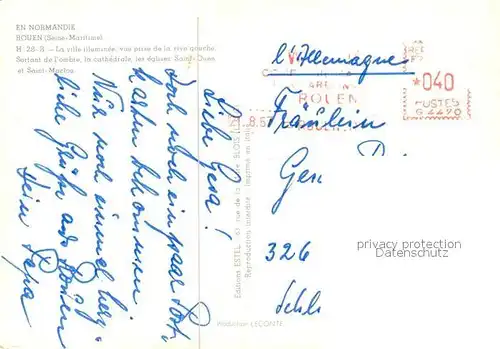 EN NORMANDIE
ROUEN (Seine-Maritime)
H. 28-R - La ville illuminée, vue prise de la rive gauche.
Sortant de l'ombre, la cathédrale, les églises Saint-Ouen
et Saint-Maclou
Liebe Gesa!
Doch noch ein paar Post-
karten bekommen
Nur noch einmal herz-
liche Grüße aus Rouen
Dein Papa
Editions ESTEL, 61 rue de la BLOIS
Reproduction interdite - Imprimé en
Production LECONTE
l'Allemagne
ROUEN
8.6
*040
POSTES
G 4420
Fräulein
Ges D.
326
Schl
privacy protection
Datenschutz